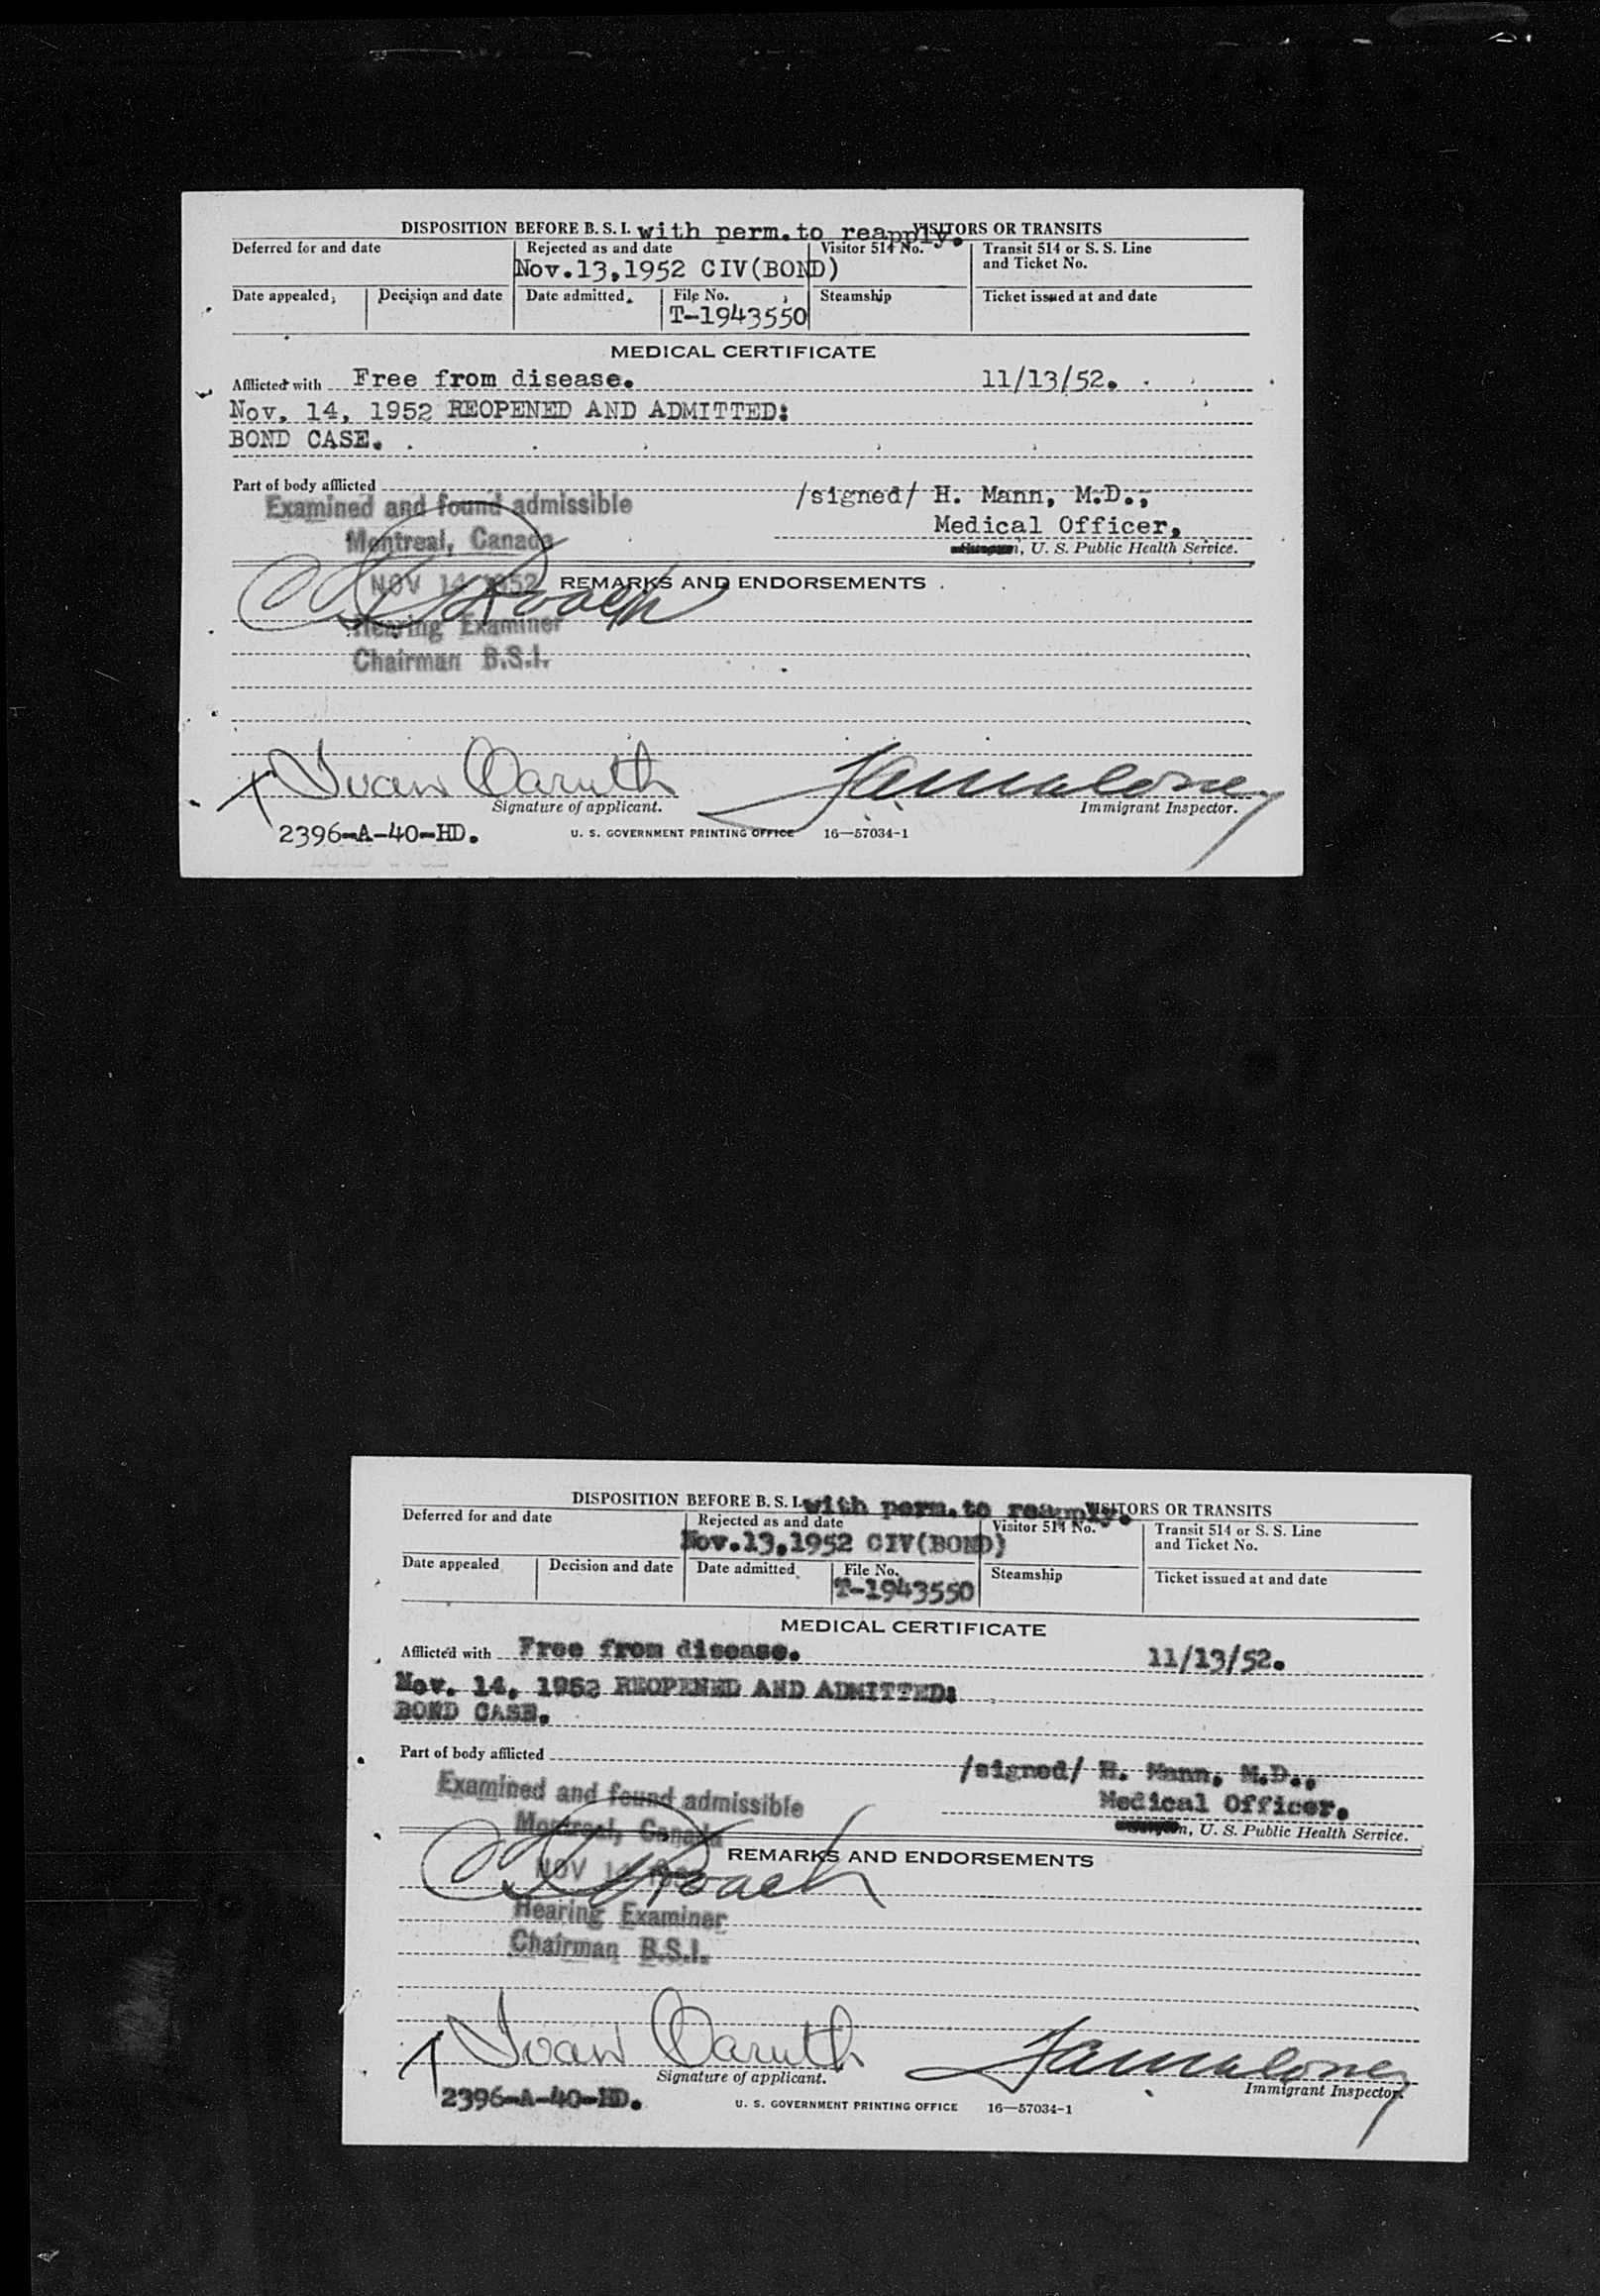 DISPOSITION BEFORE B. S. I. with perm.to reapply. VISITORS OR TRANSITS
Deferred for and date
Rejected as and date
Visitor 514 No.
Transit 514 or S. S. Line
and Ticket No.
Nov.13,1952 CIV(BOND)
Date appealed
Decision and date
Date admitted
File No.
Steamship
Ticket issued at and date
T-1943550
MEDICAL CERTIFICATE
Afflicted with Free from disease. 11/13/52.
Nov. 14, 1952 REOPENED AND ADMITTED:
BOND CASE.
Part of body afflicted
/signed/ H. Mann, M.D.,
Examined and found admissible
Medical Officer,
Montreal, Canada
, U. S. Public Health Service.
NOV 14 1952
REMARKS AND ENDORSEMENTS
Roach
Hearing Examiner
Chairman B.S.I.
Ivan Caruth
Signature of applicant.
Immigrant Inspector.
2396-A-40-HD.
U. S. GOVERNMENT PRINTING OFFICE 16—57034-1
DISPOSITION BEFORE B. S. I. with perm.to reapply. VISITORS OR TRANSITS
Deferred for and date
Rejected as and date
Visitor 514 No.
Transit 514 or S. S. Line
and Ticket No.
Nov.13,1952 CIV(BOND)
Date appealed
Decision and date
Date admitted
File No.
Steamship
Ticket issued at and date
T-1943550
MEDICAL CERTIFICATE
Afflicted with Free from disease. 11/13/52.
Nov. 14, 1952 REOPENED AND ADMITTED:
BOND CASE.
Part of body afflicted
/signed/ H. Mann, M.D.,
Examined and found admissible
Medical Officer.
Montreal, Canada
, U. S. Public Health Service.
REMARKS AND ENDORSEMENTS
NOV 14 1952
Roach
Hearing Examiner
Chairman B.S.I.
Ivan Caruth
Signature of applicant.
Immigrant Inspector.
2396-A-40-HD.
U. S. GOVERNMENT PRINTING OFFICE 16—57034-1